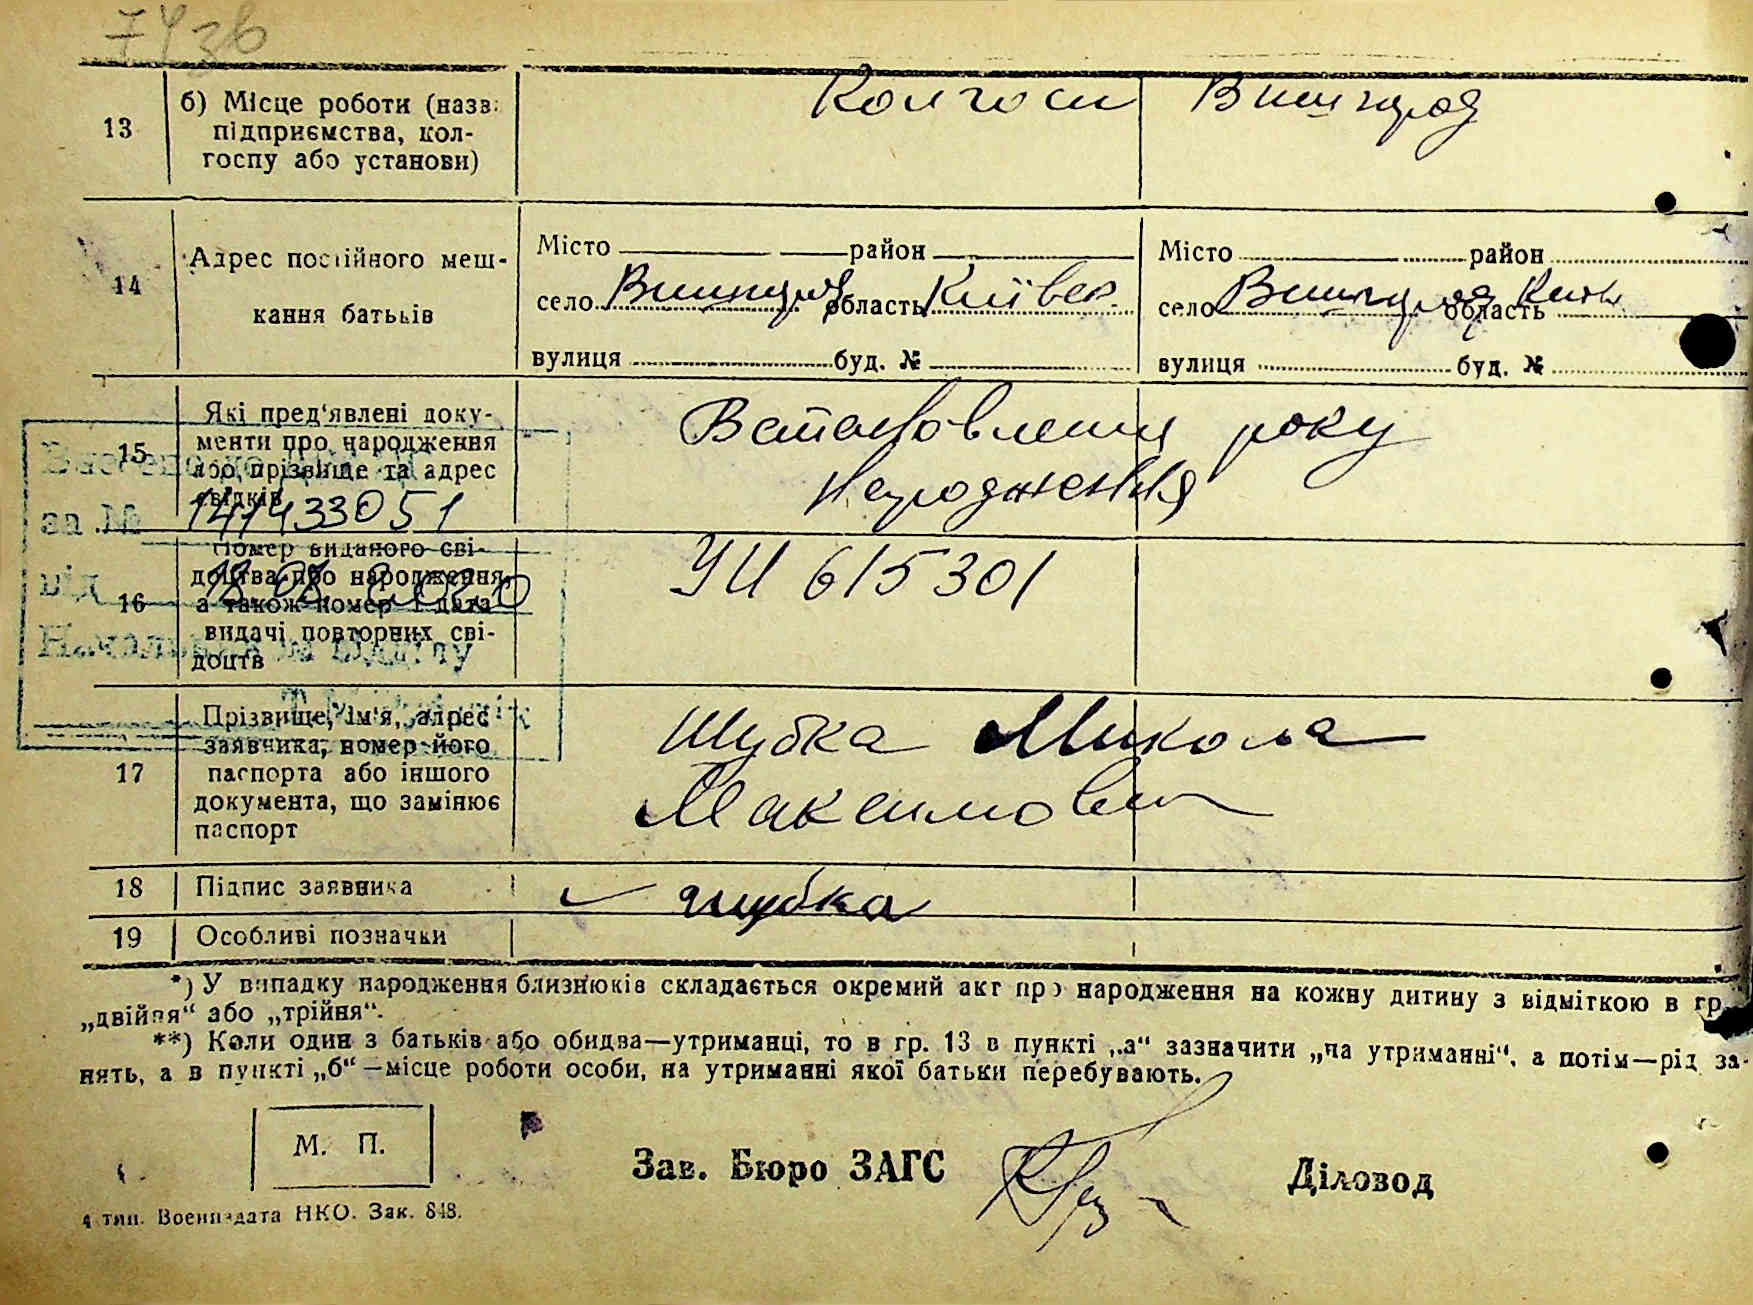 13
б) Місце роботи (назв.
підприємства, кол-
госпу або установи)
Колгосп Вишгород
14
Адрес постійного меш-
кання батьків
Місто район
село Вишгород область Київськ.
вулиця буд. №
Місто район
село Вишгород область Київ
вулиця буд. №
15
Які пред'явлені доку-
менти про народження
або прізвище та адрес
свідків
Встановлення року
народження
за №
141433051
від
18.08.2020
Начальник відділу
16
Номер виданого сві-
доцтва про народження,
а також номер і дата
видачі повторних сві-
доцтв
УИ 615301
17
Прізвище, ім'я, адрес
заявника, номер його
паспорта або іншого
документа, що замінює
паспорт
Шубка Микола
Максимович
18 Підпис заявника
Шубка
19 Особливі позначки
*) У випадку народження близнюків складається окремий акт про народження на кожну дитину з відміткою в гр.
„двійня“ або „трійня“.
**) Коли один з батьків або обидва—утриманці, то в гр. 13 в пункті „а“ зазначити „на утриманні“, а потім—рід за-
нять, а в пункті „б“—місце роботи особи, на утриманні якої батьки перебувають.
М. П.
Зав. Бюро ЗАГС
Діловод
4 тип. Воениздата НКО. Зак. 848.